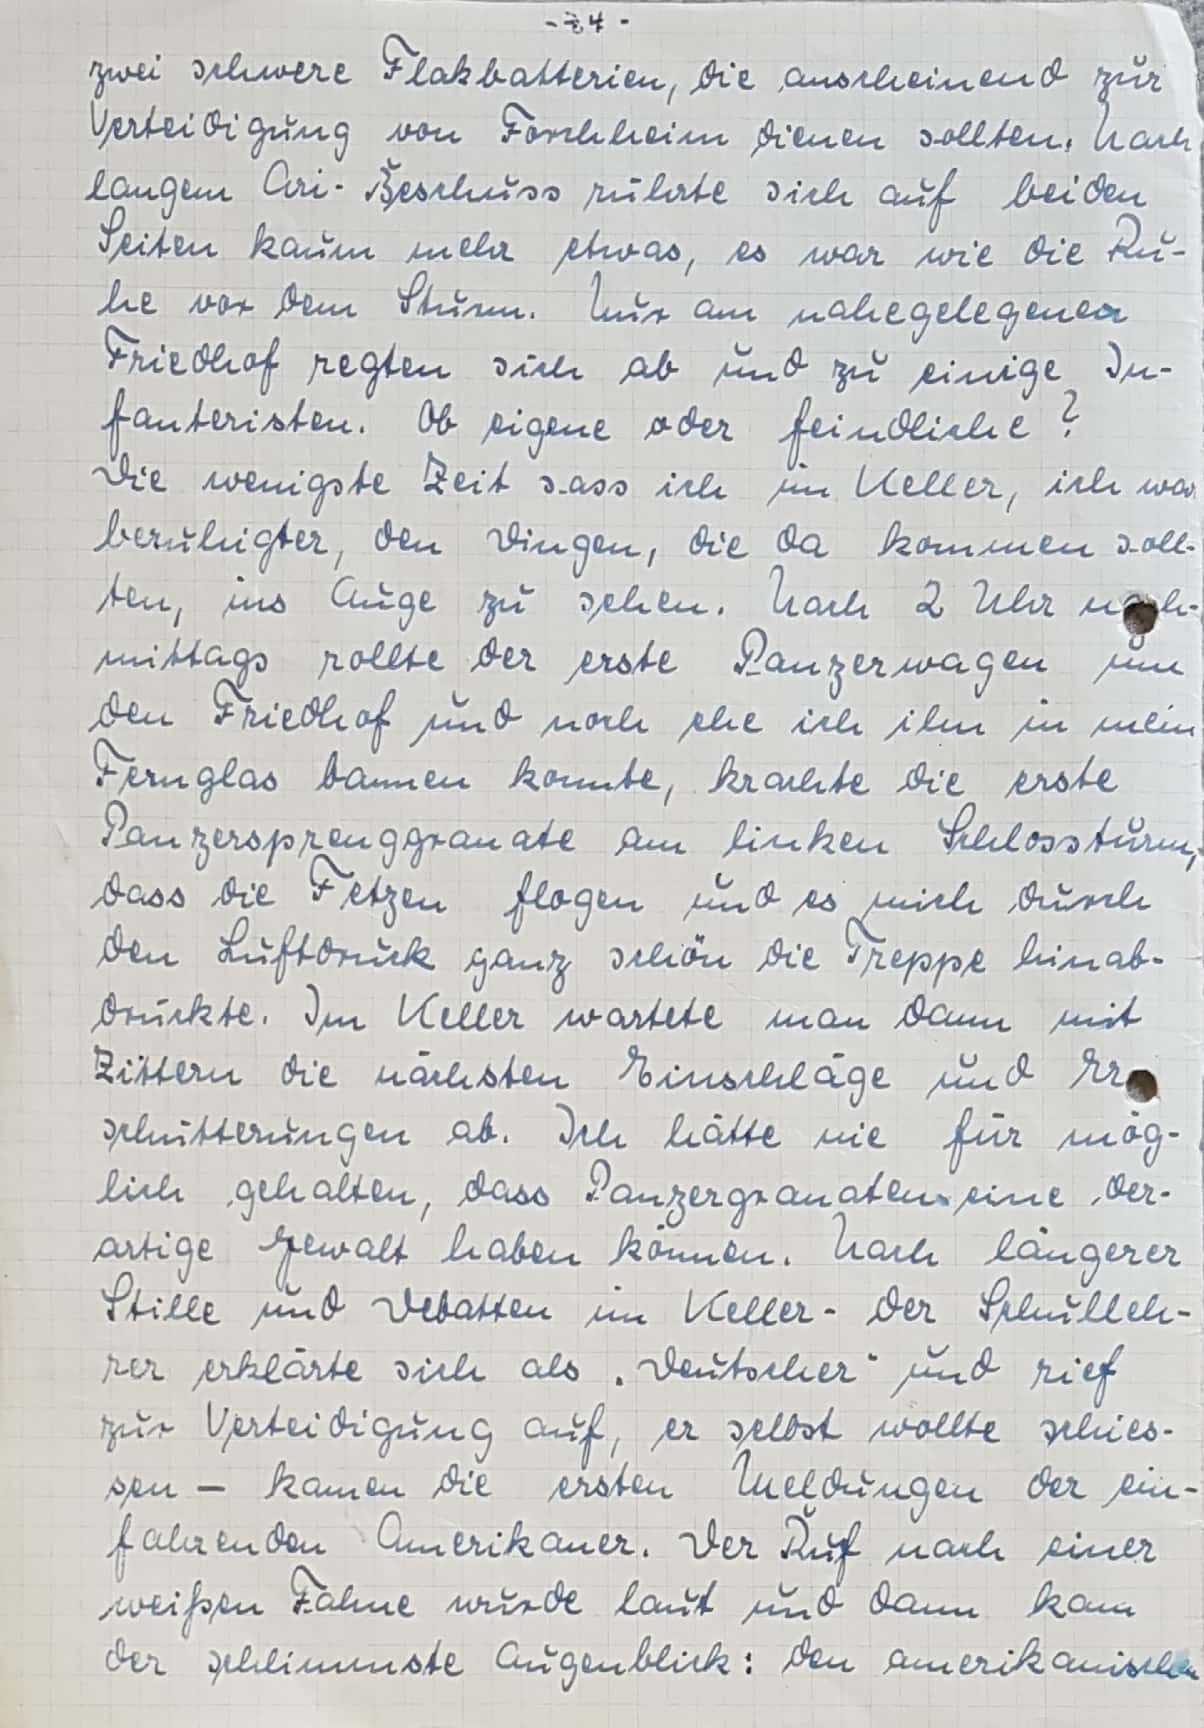 - 24 -
zwei schwere Flakbatterien, die anscheinend zur
Verteidigung von Forchheim dienen sollten. Nach
langem Ari-Beschuss rührte sich auf beiden
Seiten kaum mehr etwas, es war wie die Ru-
he vor dem Sturm. Nur am nahegelegenen
Friedhof regten sich ab und zu einige In-
fanteristen. Ob eigene oder feindliche?
Die wenigste Zeit sass ich im Keller, ich war
beruhigter, den Dingen, die da kommen soll-
ten, ins Auge zu sehen. Nach 2 Uhr nach-
mittags rollte der erste Panzerwagen um
den Friedhof und noch ehe ich ihn in mein
Fernglas bannen konnte, krachte die erste
Panzersprenggranate am linken Schlossturm,
dass die Fetzen flogen und es mich durch
den Luftdruck ganz schön die Treppe hinab-
drückte. Im Keller wartete man dann mit
Zittern die nächsten Einschläge und Er-
schütterungen ab. Ich hätte nie für mög-
lich gehalten, dass Panzergranaten eine der-
artige Gewalt haben können. Nach längerer
Stille und Debatten im Keller - der Schulleh-
rer erklärte sich als "Deutscher" und rief
zur Verteidigung auf, er selbst wollte schies-
sen — kamen die ersten Meldungen der ein-
fahrenden Amerikaner. Der Ruf nach einer
weißen Fahne wurde laut und dann kam
der schlimmste Augenblick: den amerikanischen